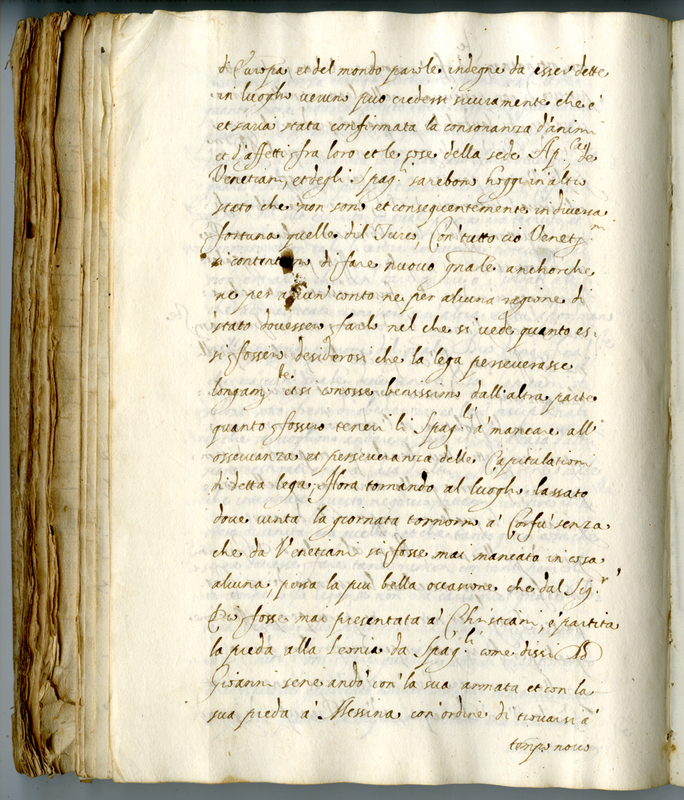 d'Europa et del mondo parole indegne da esser dette
in luogho veruno può credersi sicuramente che è
et saria stata confirmata la consonanza d'animi
et d'affetti fra loro et le cose della sede Ap.^ca de
Venetiani, et degli Spag.^li sarebon hoggi in altro
stato che non sono et consequentemente in diversa
fortuna quelle del Turco, Con tutto ciò Venet.^ni
si di fare nuovo g̃nale anchorche
ne per conto ne per alcuna ragione di
stato dovessero farlo nel che si vede quanto es
si fossero desiderosi che la lega perseverasse
longam.^te et si conosse benissimo dall'altra parte
quanto fossero teneri li Spag.^li à mancare all'
osservanza et perseveranza delle Capitulationi
di detta lega, Hora tornando al luogho lassato
dove vinta la giornata tornorno à Corfù senza
che da Venetiani si fosse mai mancato in cosa
alcuna, persa la più bella occasione che dal Sig.^r
Dio fosse mai presentata à Christiani, e partita
la preda alla Leonia da Spag.^li come dissi D
Giovanni se ne andò con la sua armata et con la
sua preda à Messina con ordine di trovarsi à
tempo novo